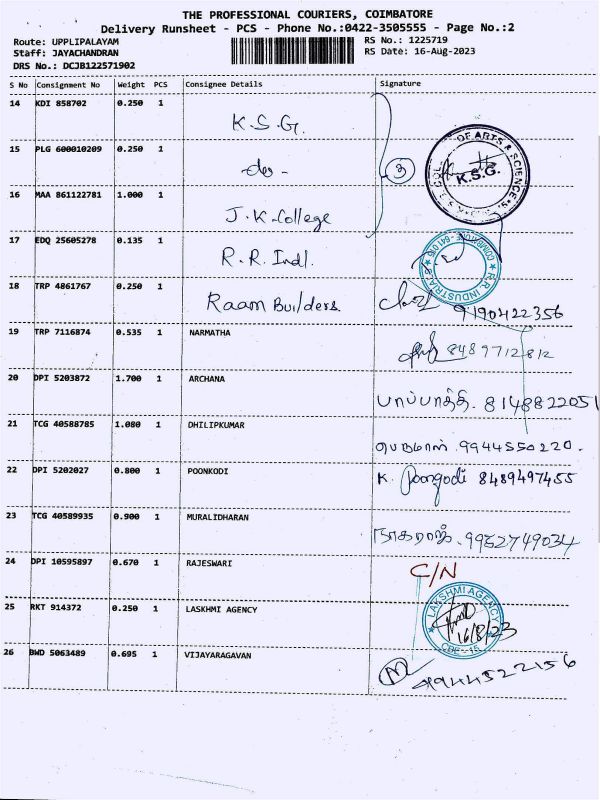 THE PROFESSIONAL COURIERS, COIMBATORE
Delivery Runsheet - PCS - Phone No.:0422-3505555 - Page No.:2
Route: UPPLIPALAYAM RS No.: 1225719
Staff: JAYACHANDRAN RS Date: 16-Aug-2023
DRS No.: DCJB122571902
S No Consignment No Weight PCS Consignee Details Signature
14 KDI 858702 0.250 1 K.S.G.
15 PLG 600010209 0.250 1 3
OF ARTS & SCIENCE
K.S.G.
16 MAA 861122781 1.000 1 J.K.College
17 EDQ 25605278 0.135 1 R.R. Indl.
R.R. INDUSTRIALS
18 TRP 4861767 0.250 1 Raam Builders 9190422356
19 TRP 7116874 0.535 1 NARMATHA 8489712812
20 DPI 5203872 1.700 1 ARCHANA பாப்பாத்தி. 8148822051
21 TCG 40588785 1.080 1 DHILIPKUMAR பெருமாள். 9944550220.
22 DPI 5202027 0.800 1 POONKODI K. Poongodi 8489497455
23 TCG 40589935 0.900 1 MURALIDHARAN நாகராஜ். 9952749034
24 DPI 10595897 0.670 1 RAJESWARI C/N
25 RKT 914372 0.250 1 LASKHMI AGENCY
LAKSHMI AGENCY
16/8/23
CBE - 15
26 BWD 5063489 0.695 1 VIJAYARAGAVAN 9944522156